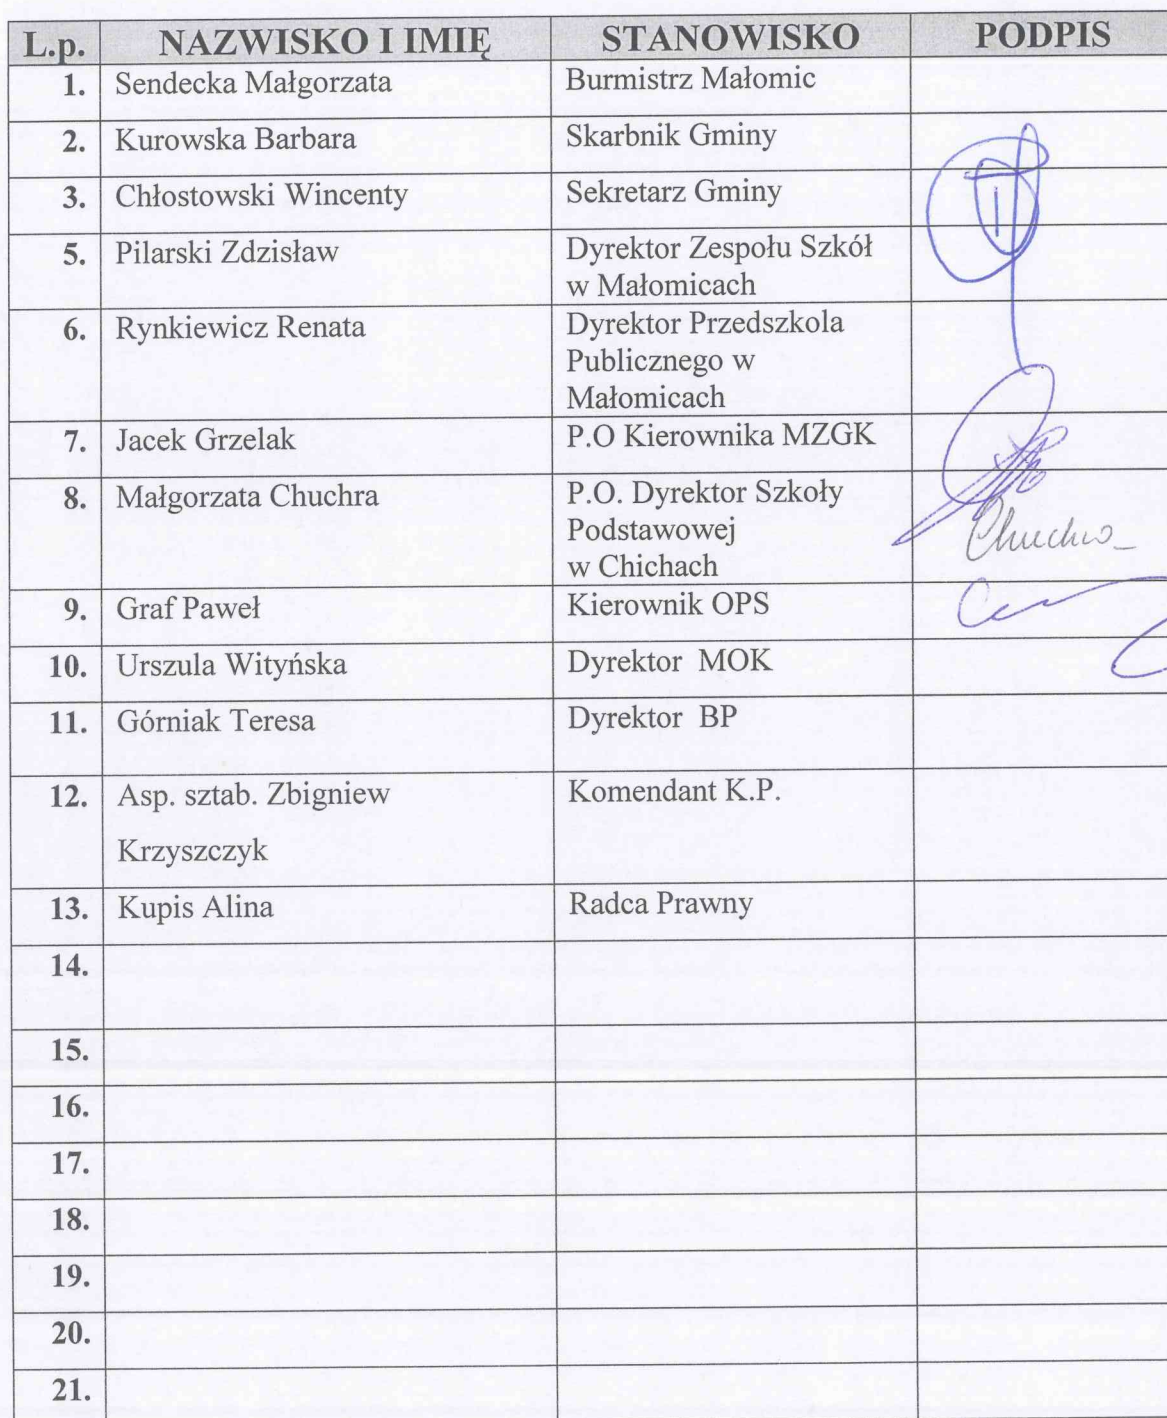 L.p. NAZWISKO I IMIĘ STANOWISKO PODPIS
1. Sendecka Małgorzata Burmistrz Małomic
2. Kurowska Barbara Skarbnik Gminy
3. Chłostowski Wincenty Sekretarz Gminy
5. Pilarski Zdzisław Dyrektor Zespołu Szkół
w Małomicach
6. Rynkiewicz Renata Dyrektor Przedszkola
Publicznego w
Małomicach
7. Jacek Grzelak P.O Kierownika MZGK
8. Małgorzata Chuchra P.O. Dyrektor Szkoły
Podstawowej
w Chichach
9. Graf Paweł Kierownik OPS
10. Urszula Wityńska Dyrektor MOK
11. Górniak Teresa Dyrektor BP
12. Asp. sztab. Zbigniew Komendant K.P.
Krzyszczyk
13. Kupis Alina Radca Prawny
14.
15.
16.
17.
18.
19.
20.
21.